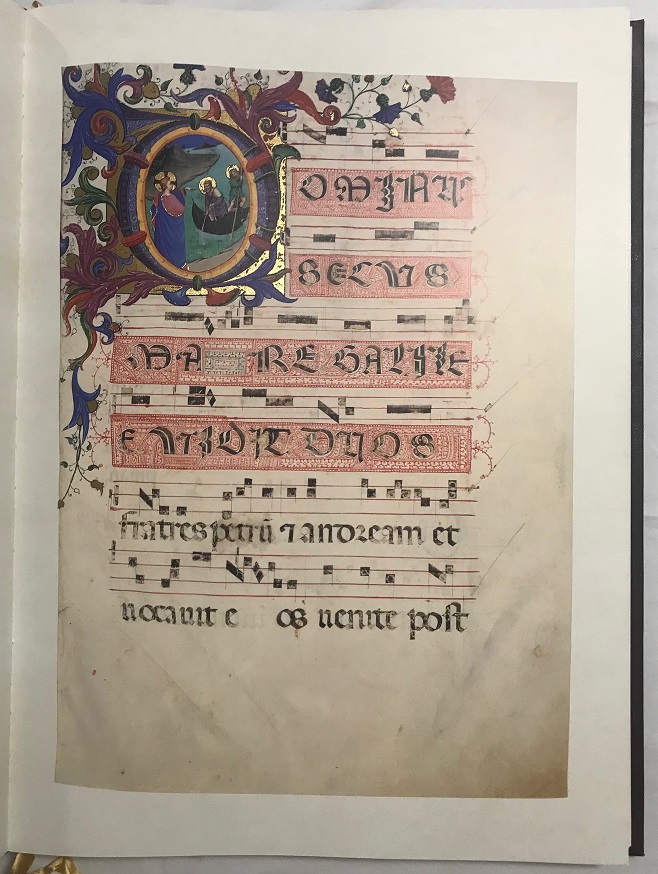 DOMINUS
SECUS
MA RE GALILE
E VIDIT DUOS
fratres petrū ⁊ andream et
uocauit e os uenite post